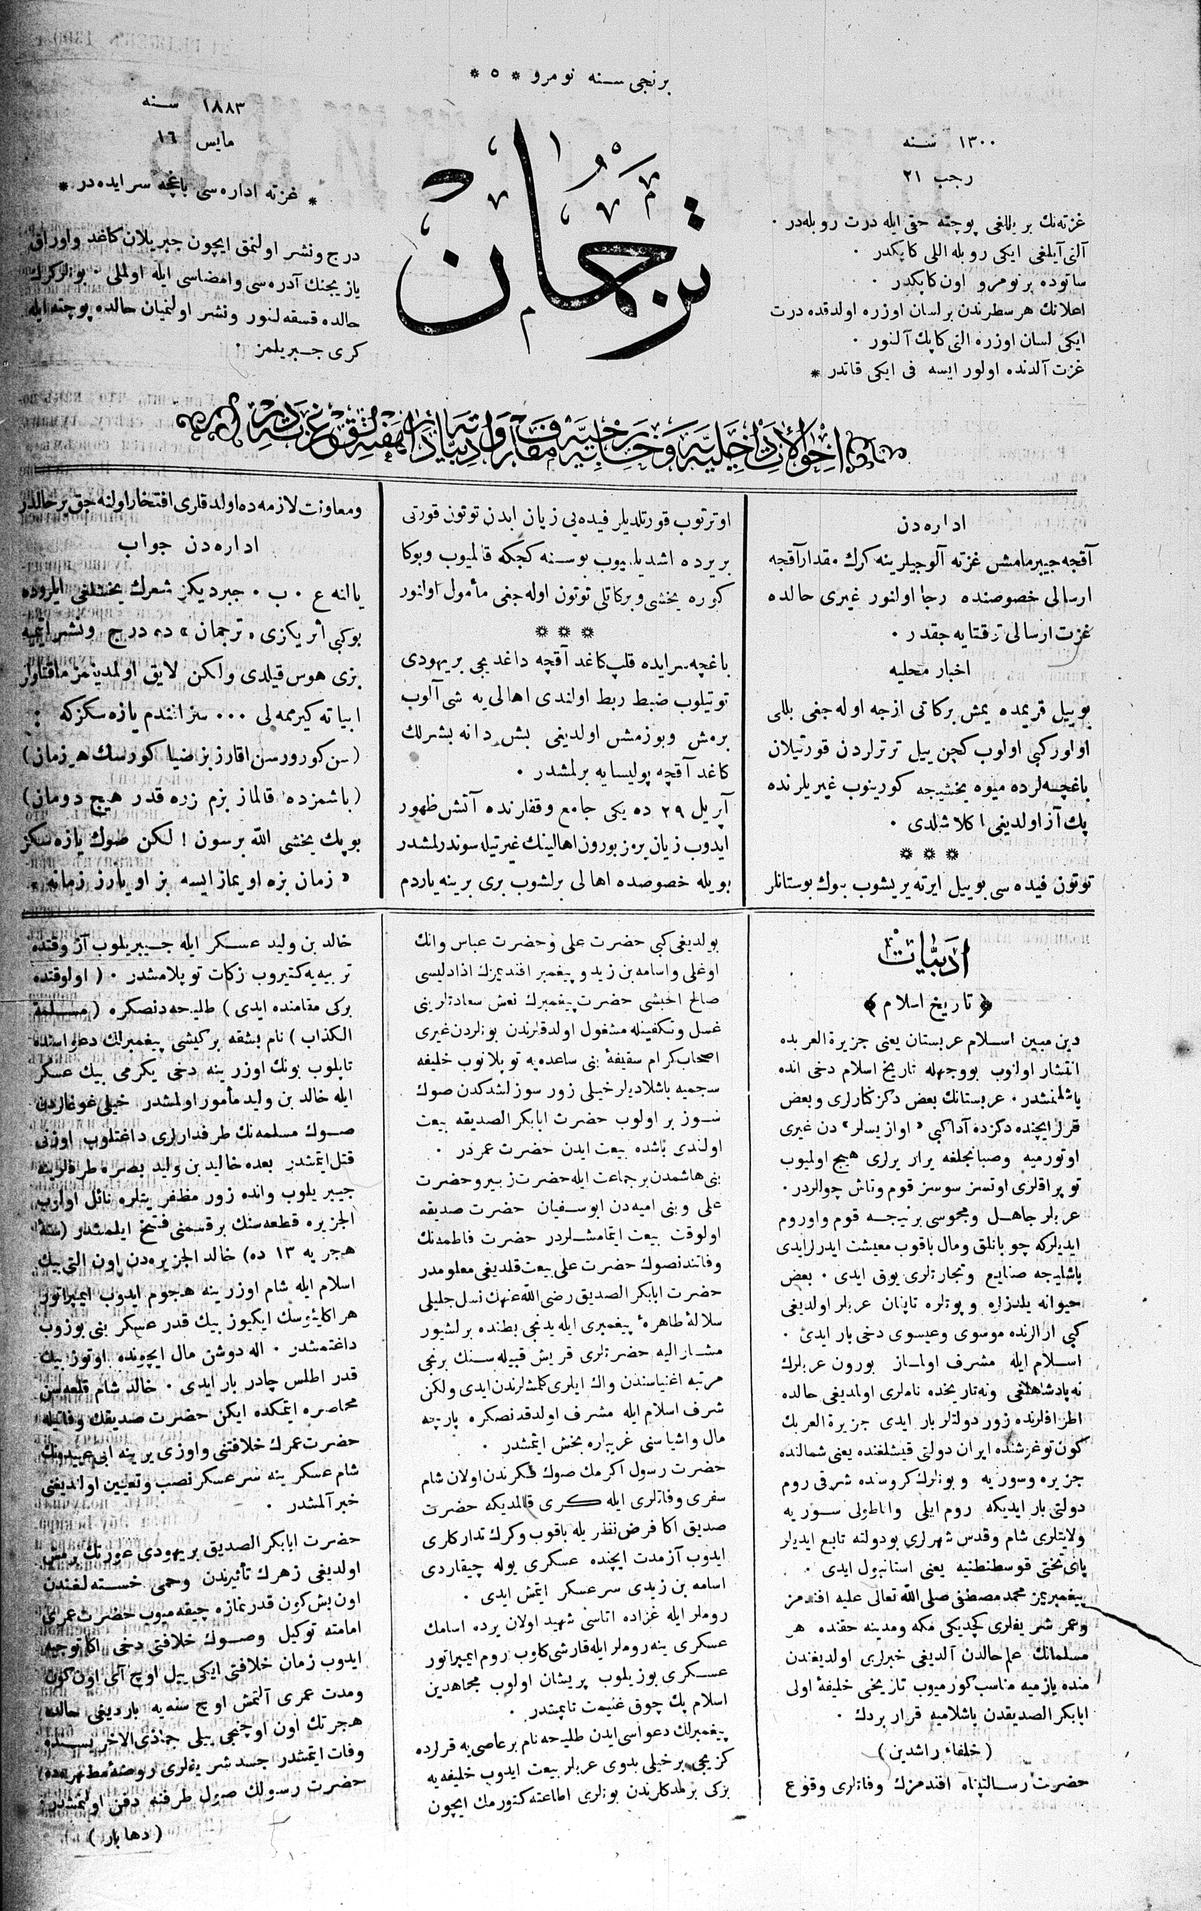 برنجی سنه نومرو * ٥ *
١٣٠٠ سنه
رجب ٢١
١٨٨٣ سنه
مايس ١٦
ترجمان
غزته‌نك بر يللغی پوچته حقی ايله درت روبله‌در ٠
آلتی آيلغی ايكی روبله اللی كاپكدر ٠
ساتوده بر نومرو اون كاپكدر ٠
اعلانك هر سطرندن بر لسان اوزره اولدقده درت
ايكی لسان اوزره التی كاپك آلنور ٠
غزت آلدنده اولور ايسه فی ايكی قاتدر *
* غزته اداره سی باغچه سرايده در *
درج ونشر اولنمق ايچون جبريلان كاغد واوراق
يازيجنك آدره سی وامضاسی ايله اولملی ٠ بونلر كرك
حالده قسقه لنور ونشر اولنميان حالده پوچته ايله
كری جبريلمز ٠
اداره دن
آقچه جيبرمامش غزته آلوجيلرينه كرك مقدار آقچه
ارسالی خصوصنده رجا اولنور غيری حالده
غزت ارسالی توقتايه جقدر ٠
اخبار محليه
بو ييل قريمده يمش بركاتی ازجه اوله جغی بللی
اولور كبی اولوب كچن ييل ترترلردن قورتيلان
باغچه لرده ميوه يخشيجه كورينوب غيريلرنده
پك آز اولديغی اكلاشلدی ٠
* * *
توتون فيده سی بو ييل ايرته يريشوب بوك بوستانلر
اوترتوب قورتلديلر فيده يی زيان ايدن توتون قورتی
بر يرده اشديلميوب بو سنه كچكه قالميوب وبوكا
كوره يخشی وبركاتلی توتون اوله جغی مأمول اولنور
* * *
باغچه سرايده قلب كاغد آقچه داغديجی بر يهودی
توتيلوب ضبط ربط اولندی اهالی يه شی آلوب
برمش وبوزمش اولديغی بش دانه بشرلك
كاغد آقچه پوليسايه برلمشدر ٠
آپريل ٢٩ ده يكی جامع وقفلرنده آتش ظهور
ايدوب زيان برمز بورون اهالينك غيرتيله سوندرلمشدر
بويله خصوصده اهالی برلشوب بری برينه ياردم
ومعاونت لازمه ده اولدقلری افتخار اولنه جق بر حالدر
اداره دن جواب
يا انه ع ٠ ب ٠ جبرديكز شعرك يخشلغی ايلروده
بوكبی أثريكزی « ترجمان » ده درج ونشر ايتمه
بزی هوس قيلدی ولكن لايق اولمديغمز ماقتاولر
ابياته كيرممه لی ٠٠٠ سز افندم يازه سكزكه :
( سن كورورسن اقارز بز ضيا كورسك هر زمان )
( باشمزده قالماز بزم زره قدر هيچ دومان )
بو پك يخشی الله برسون ! لكن صوك يازه سكز
« زمان بزه اويماز ايسه بز اويارز زمانه »
ادبيات
﴿ تاريخ اسلام ﴾
دين مبين اسلام عربستان يعنی جزيرة العربده
انتشار اولنوب بووجهله تاريخ اسلام دخی انده
باشلنمشدر ٠ عربستانك بعض دكز كنارلری وبعض
قرلر ايچنده دكزده آدا كبی « اوازيسلر » دن غيری
اوتورميه وصبانجلغه يرار يرلری هيچ اولميوب
توپراقلری اوتسز سوسز قوم وتاش چوللردر ٠
عربلر جاهل ومجوسی برنيجه قوم واوروم
ايديلركه چوبانلق ومال باقوب معيشت ايدرلرايدی
باشليجه صنايع وتجارتلری يوق ايدی ٠ بعض
حيوانه يلدزلره وپوتلره تاپنان عربلر اولديغی
كبی ارالرنده موسوی وعيسوی دخی بار ايدی ٠
اسلام ايله مشرف اولماز بورون عربلرك
نه پادشاهلغی ونه تاريخده ناملری اولمديغی حالده
اطرافلرنده زور دولتلر بار ايدی جزيرة العربك
كون توغرشنده ايران دولتی قبشلغنده يعنی شمالنده
جزيره وسوريه وبونلرك كروسنده شرقی روم
دولتی بار ايديكه روم ايلی واناطولی سوريه
ولايتلری شام وقدس شهرلری بودولته تابع ايديلر
پای تختی قوسطنطنيه يعنی استانبول ايدی ٠
پيغمبريمز محمد مصطفی صلی الله تعالی عليه افندمز
وعمر شريفلری كجديكی مكه ومدينه حقنده هر
مسلمانك علم حالدن آلديغی خبرلری اولديغندن
منده يازميه مناسب كورميوب تاريخی خليفۀ اولی
ابابكر الصديقدن باشلاميه قرار بردك ٠
( خلفاء راشدين )
حضرت رسالتپناه افندمزك وفاتلری وقوع
بولديغی كبی حضرت علی وحضرت عباس وانك
اوغلی واسامه بن زيد وپيغمبر افنديمزك اذادليسی
صالح الحبشی حضرت پيغمبرك نعش سعادتلرينی
غسل وتكفينله مشغول اولدقلرندن بونلردن غيری
اصحاب كرام سقيفۀ بنی ساعده يه توپلانوب خليفه
سچميه باشلاديلر خيلی زور سوزلشدكدن صوك
سوز بر اولوب حضرت ابابكر الصديقه بيعت
اولندی باشده بيعت ايدن حضرت عمردر ٠
بنی هاشمدن بر جماعت ايله حضرت زبير وحضرت
علی وبنی اميه دن ابو سفيان حضرت صديقه
اولوقت بيعت ايتمامشلردر حضرت فاطمه نك
وفاتندنصوك حضرت علی بيعت قلديغی معلومدر
حضرت ابابكر الصديق رضی الله عنهك نسل جليلی
سلالۀ طاهرۀ پيغمبری ايله يدنجی بطنده برلشيور
مشار اليه حضرتلری قريش قبيله سنك برنجی
مرتبه اغنياسندن واك ايلری كلمشلرندن ايدی ولكن
شرف اسلام ايله مشرف اولدقدنصكره پارچه
مال واشياسنی غريبلره بخش ايتمشدر ٠
حضرت رسول اكرمك صوك فكرندن اولان شام
سفری وفاتلری ايله كری قالمديكه حضرت
صديق اكا فرض نظريله باقوب وكرك تداركلری
ايدوب آز مدت ايچنده عسكری يوله چيقاردی
اسامه بن زيدی سر عسكر ايتمش ايدی ٠
روملر ايله غزاده اتاسی شهيد اولان يرده اسامك
عسكری ينه روملر ايله قارشی كلوب روم ايمپراتور
عسكری بوزيلوب پريشان اولوب مجاهدين
اسلام پك چوق غنيمت تاپمشدر ٠
پيغمبرلك دعواسی ايدن طليحه نام بر عاصی يه قرلرده
كزيجی بر خيلی بدوی عربلر بيعت ايدوب خليفه يه
بركی برلمدكلرندن بونلری اطاعته كتورمك ايچون
خالد بن وليد عسكر ايله جيبريلوب آز وقتده
تربيه يه كتيروب زكات توپلامشدر ٠ ( اولوقتده
بركی مقامنده ايدی ) طليحه دنصكره ( مسلمة
الكذاب ) نام بشقه بر كيشی پيغمبرلك دعواسنده
تاپلوب بونك اوزرينه دخی يكرمی بيك عسكر
ايله خالد بن وليد مأمور اولمشدر خيلی غوغاردن
صوك مسلمه نك طرفدارلری داغتلوب اوزنی
قتل ايتمشدر بعده خالد بن وليد بصره طرفلرينه
جيبريلوب وانده زور مظفريتلره نائل اولوب
الجزيره قطعه سنك بر قسمنی فتح ايلمشدر ( سنۀ
هجريه ١٣ ده ) خالد الجزيره دن اون التی بيك
اسلام ايله شام اوزرينه هجوم ايدوب ايمپراتور
هراكليوسك ايكيوز بيك قدر عسكرينی بوزوب
داغتمشدر ٠ اله دوشن مال ايچنده اوتوز بيك
قدر اطلس چادر بار ايدی ٠ خالد شام قلعه سن
محاصره ايتمكده ايكن حضرت صديقك وفاتيله
حضرت عمرك خلافتنی واوزی يرينه ابی عبيده نك
شام عسكرينه سر عسكر نصب وتعيين اولنديغنی
خبر آلمشدر ٠
حضرت ابابكر الصديق بر يهودی عورتك برمش
اولديغی زهرك تأثيرندن وحمی خسته لغندن
اون بش كون قدر نمازه چيقه ميوب حضرت عمری
امامته توكيل وصوك خلافتی دخی اكا توجيه
ايدوب زمان خلافتی ايكی ييل اوچ آلی اون كون
ومدت عمری آلتمش اوچ سنه يه بارديغی حالده
هجرتك اون اوچنجی ييلی جماذی الاخر يسنده
وفات ايتمشدر جسد شريفلری روضۀ مطهره ده
حضرت رسولك صول طرفنه دفن اولنمشدر ٠
( دها بار )